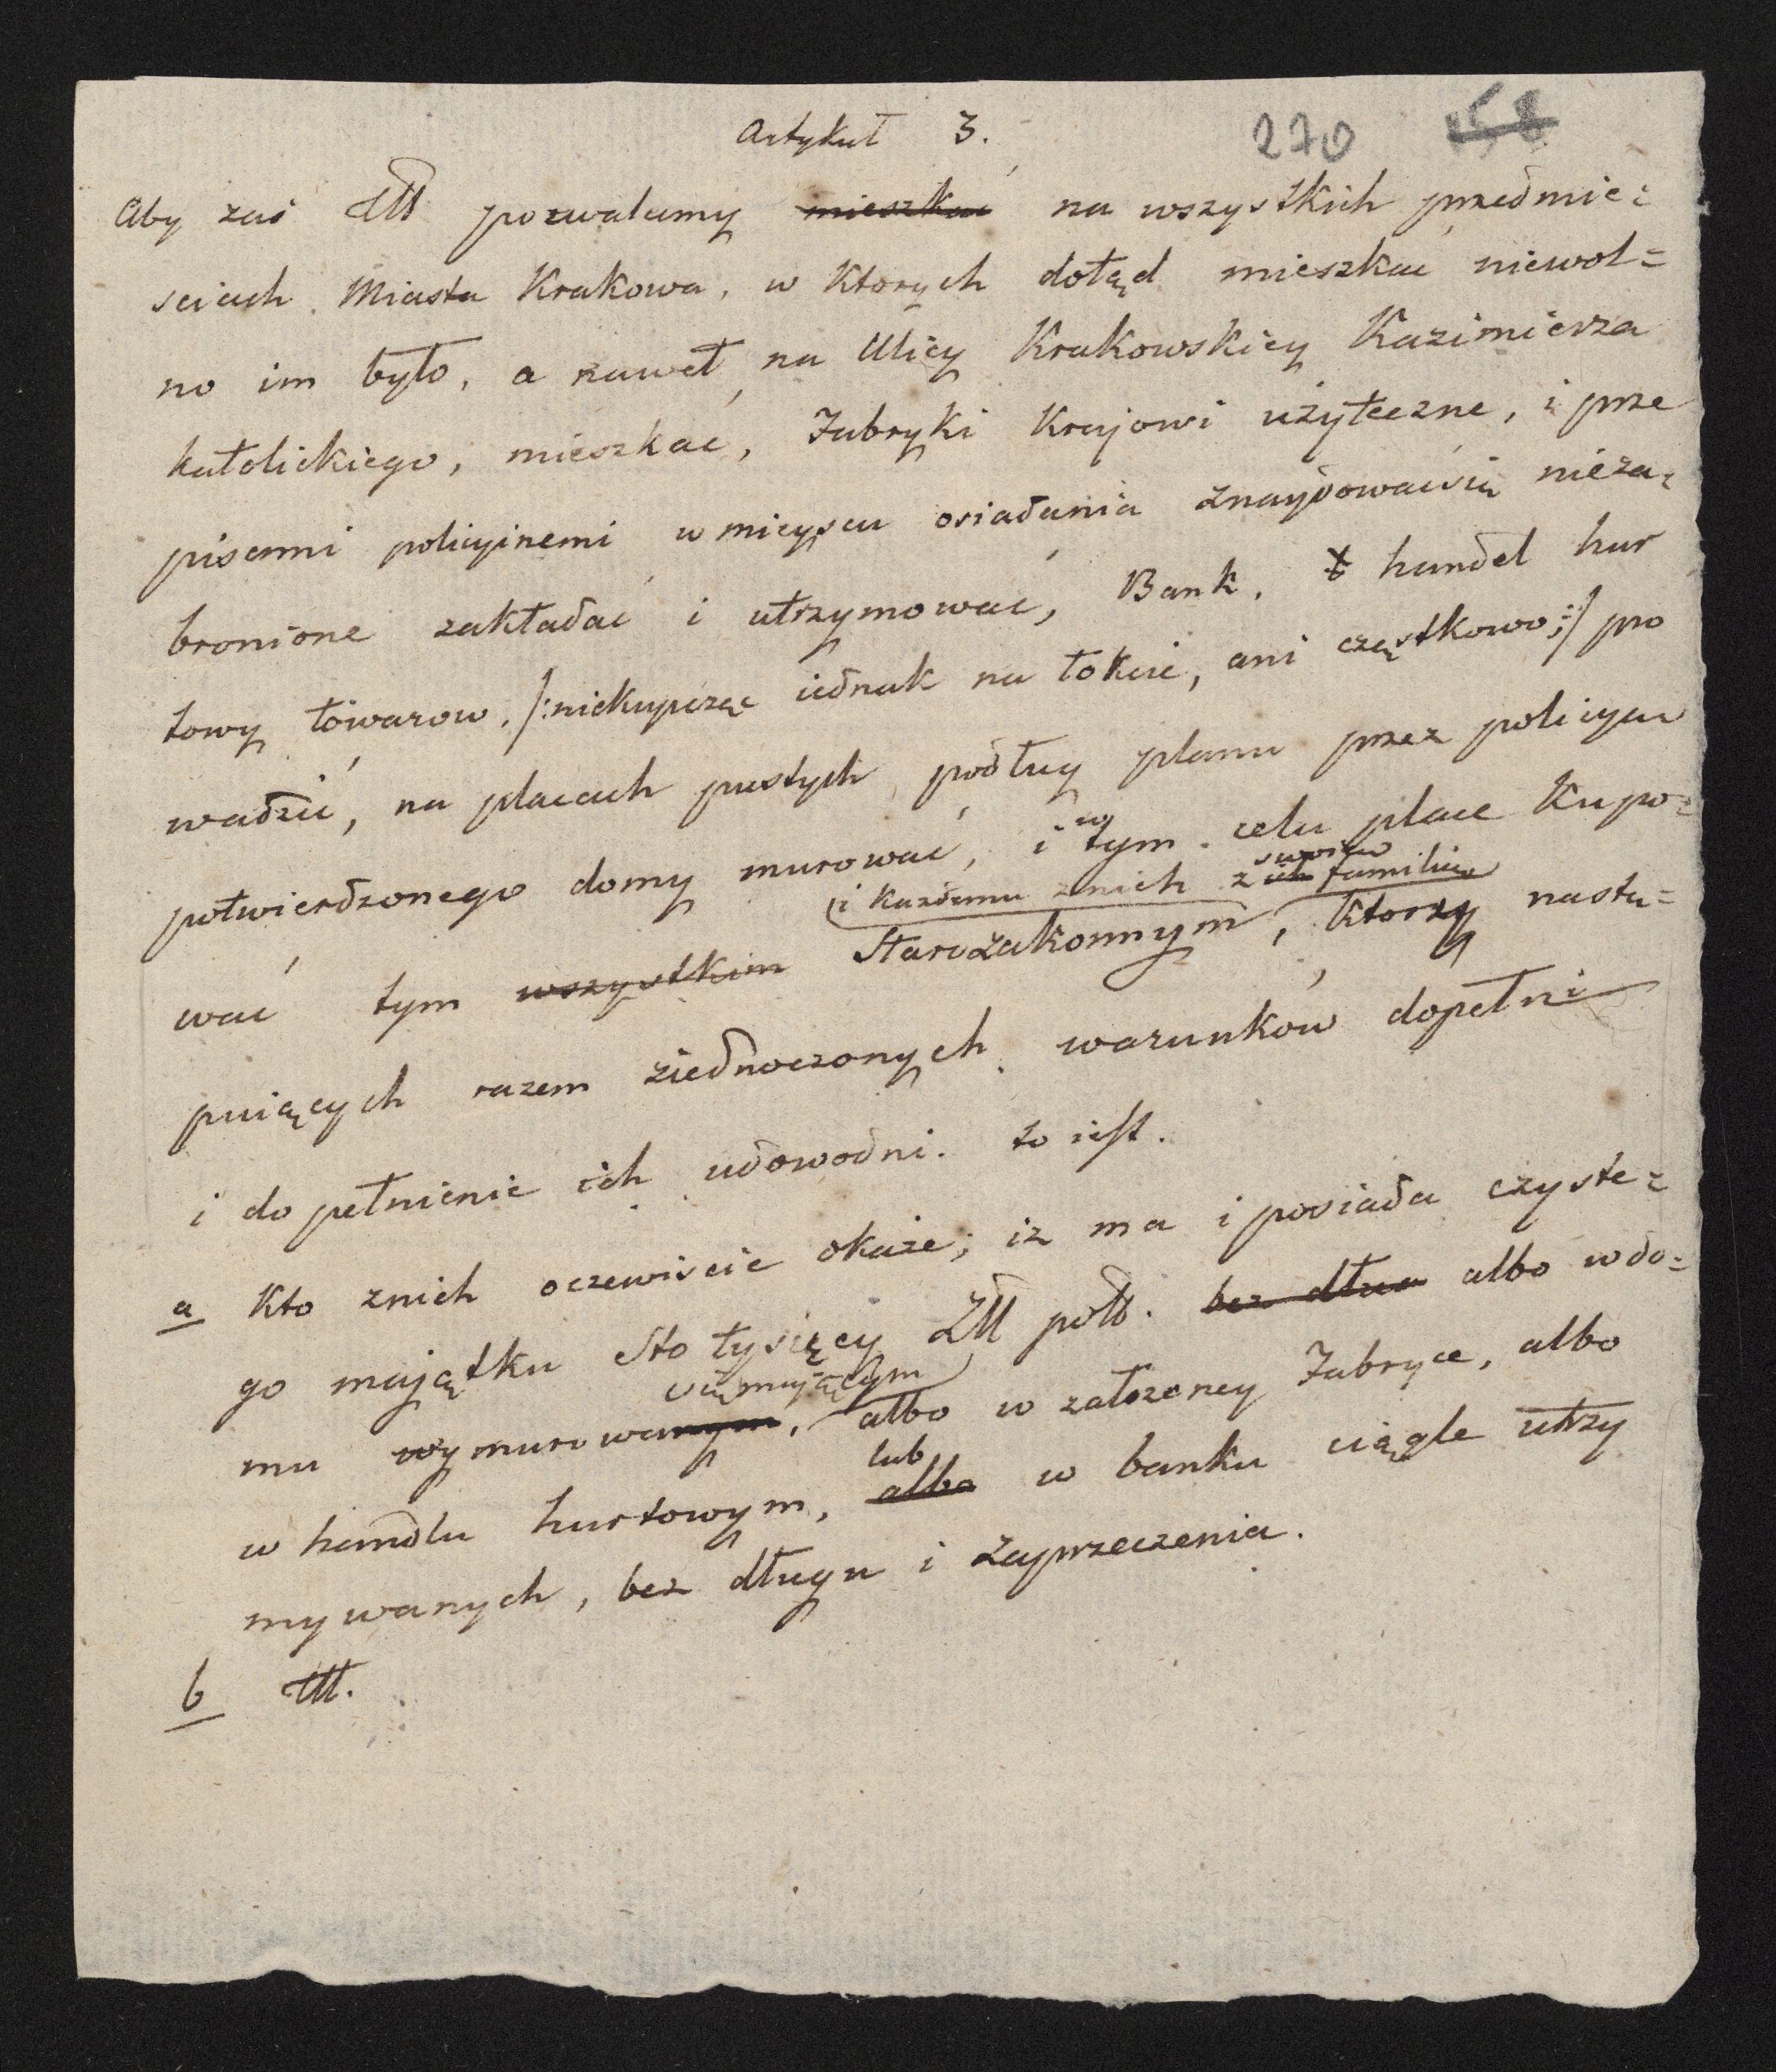 Artykuł 3.
270 158
Aby zaś etc pozwalamy mieszkać na wszystkich przedmie=
sciach Miasta Krakowa, w ktorych dotąd mieszkać niewol=
no im było, a nawet na Ulicy Krakowskiey Kazimierza
katolickiego, mieszkać, Fabryki Krajowi użyteczne, i prze
pisami policyinemi w mieyscu osiadania znaydowaćsię nieza=
bronione zakładać i utrzymować, Bank, handel hur
towy towarow, /:niekupcząc iednak na łokcie, ani cząstkowo;:/ pro
wadzić, na placach pustych podług planu przez policyą
potwierdzonego domy murować, i w tym celu place Kupo=
i każdemu znich z ich swoią familią
wać tym wszystkim Starozakonnym, ktorzy nastę=
puiących razem ziednoczonych warunków dopełni
i dopełnienie ich udowodni. to iest.
a Kto znich oczewiście okaże; iz ma i posiada czyste=
go mająţku Sto tysięcy Złł poll. bez długu albo wdo=
się mającym
mu wymurowanym, albo w założoney Fabryce, albo
lub
w handlu hurtowym, albo w banku ciągle utrzy
mywanych, bez długu i zaprzeczenia.
b etc.